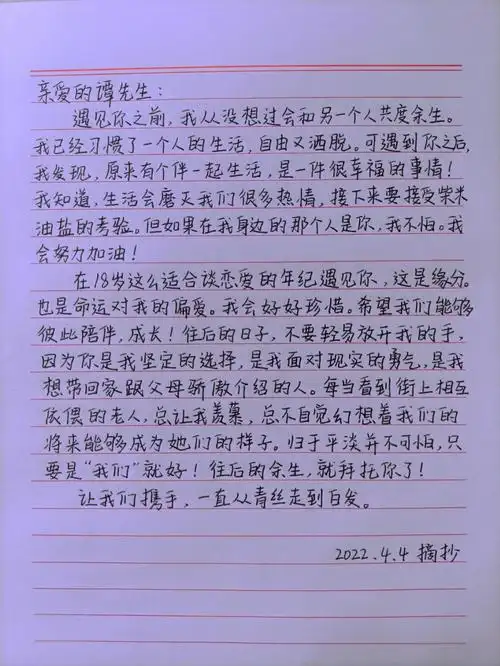 亲爱的谭先生：
遇见你之前，我从没想过会和另一个人共度余生。
我已经习惯了一个人的生活，自由又洒脱。可遇到你之后，
我发现，原来有个伴一起生活，是一件很幸福的事情！
我知道，生活会磨灭我们很多热情，接下来要接受柴米
油盐的考验。但如果在我身边的那个人是你，我不怕。我
会努力加油！
在18岁这么适合谈恋爱的年纪遇见你，这是缘分。
也是命运对我的偏爱。我会好好珍惜。希望我们能够
彼此陪伴，成长！往后的日子，不要轻易放开我的手，
因为你是我坚定的选择，是我面对现实的勇气，是我
想带回家跟父母骄傲介绍的人。每当看到街上相互
依偎的老人，总让我羡慕，总不自觉幻想着我们的
将来能够成为她们的样子。归于平淡并不可怕，只
要是“我们”就好！往后的余生，就拜托你了！
让我们携手，一直从青丝走到白发。
2022.4.4 摘抄